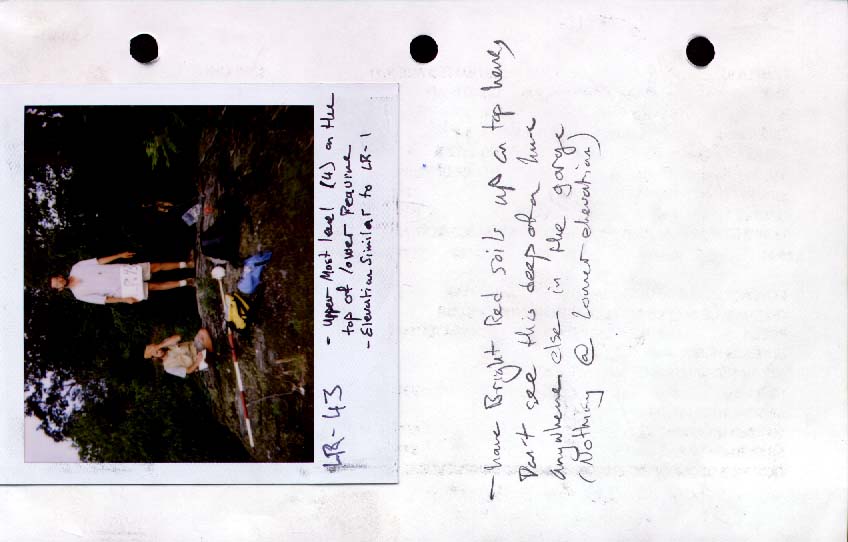 LR-43
- Upper Most level (4) on the
top of lower Pequine
- Elevation Similar to LR-1
- have Bright Red soils up on top here,
Don't see this deep of a hue
anywhere else in the gorge
(Nothing @ lower elevation)